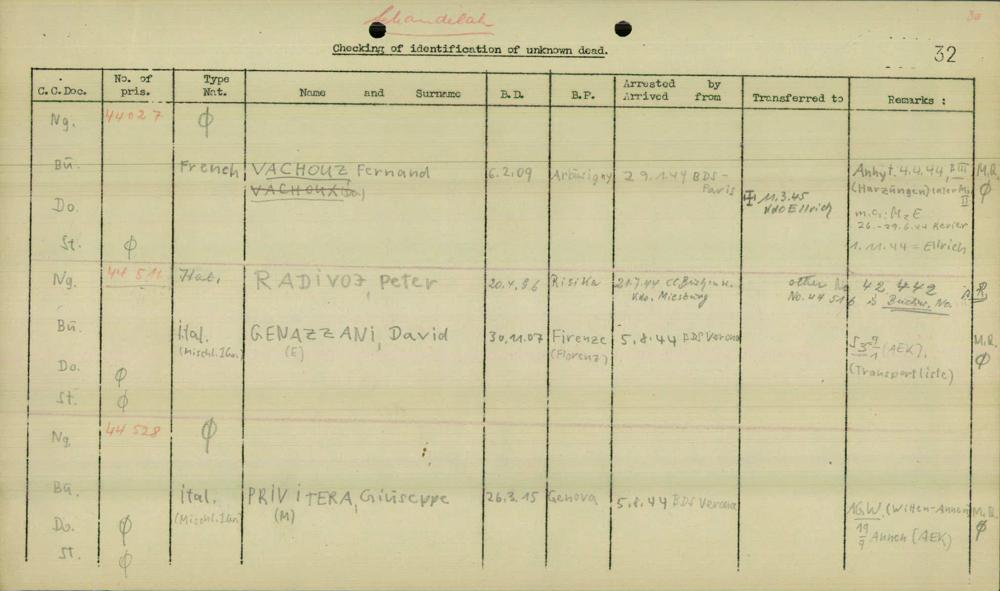 Schandelah
30
Checking of identification of unknown dead.
32
C.C.Doc. No. of pris. Type Nat. Name and Surname B.D. B.P. Arrested by Arrived from Transferred to Remarks :
Ng. 44027 ϕ
Bü. French VACHOUZ Fernand 6.2.09 29.1.44 BDS- Paris Anhyt. 4.4.44, B III M.R.
VACHOUX (Do) (Harzüngen) ϕ
Do. 11.3.45 Kdo Ellrich
26.-29.6.44 Revier
St. ϕ 1.11.44 = Ellrich
Ng. 44 511 RADIVOJ, Peter 20.4.96 Risika 21.7.44 Kdo. Miesburg other No 42 442 is R
No. 44 516 is Buchw. No.
Bü. ital. GENAZZANI, David 30.11.07 Firenze 5.8.44 BDS Verona M.R.
(Mischl. I Gr.) (E) (Florenz) (AEK). ϕ
Do. ϕ (Transportliste)
St. ϕ
Ng. 44 528 ϕ
Bü. ital. PRIVITERA, Giuseppe 26.3.15 Genova 5.8.44 BDS Verona
(Mischl. I Gr.) (M) (Witten-Annen) M.R.
Do. ϕ 19/9 Annen (AEK) ϕ
St. ϕ